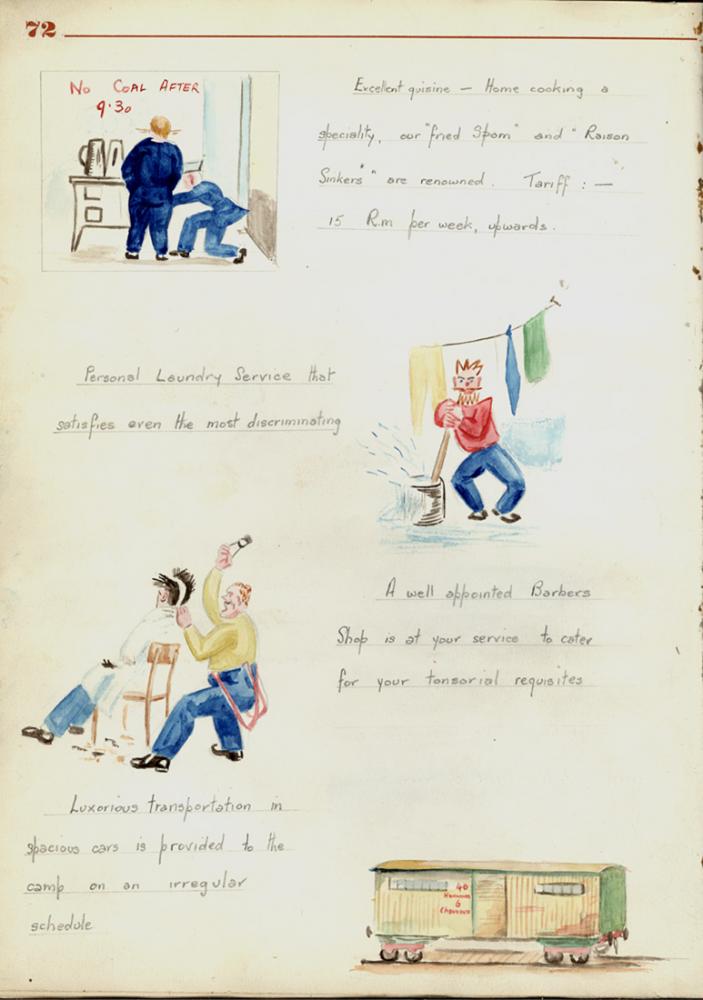 72
No COAL AFTER
9.30
Excellent quisine — Home cooking a
speciality, our "fried Spam" and "Raison
Sinkers" are renowned. Tariff : —
15 R.m per week, upwards.
Personal Laundry Service that
satisfies even the most discriminating
A well appointed Barbers
Shop is at your service to cater
for your tonsorial requisites
Luxorious transportation in
spacious cars is provided to the
camp on an irregular
schedule
40
6